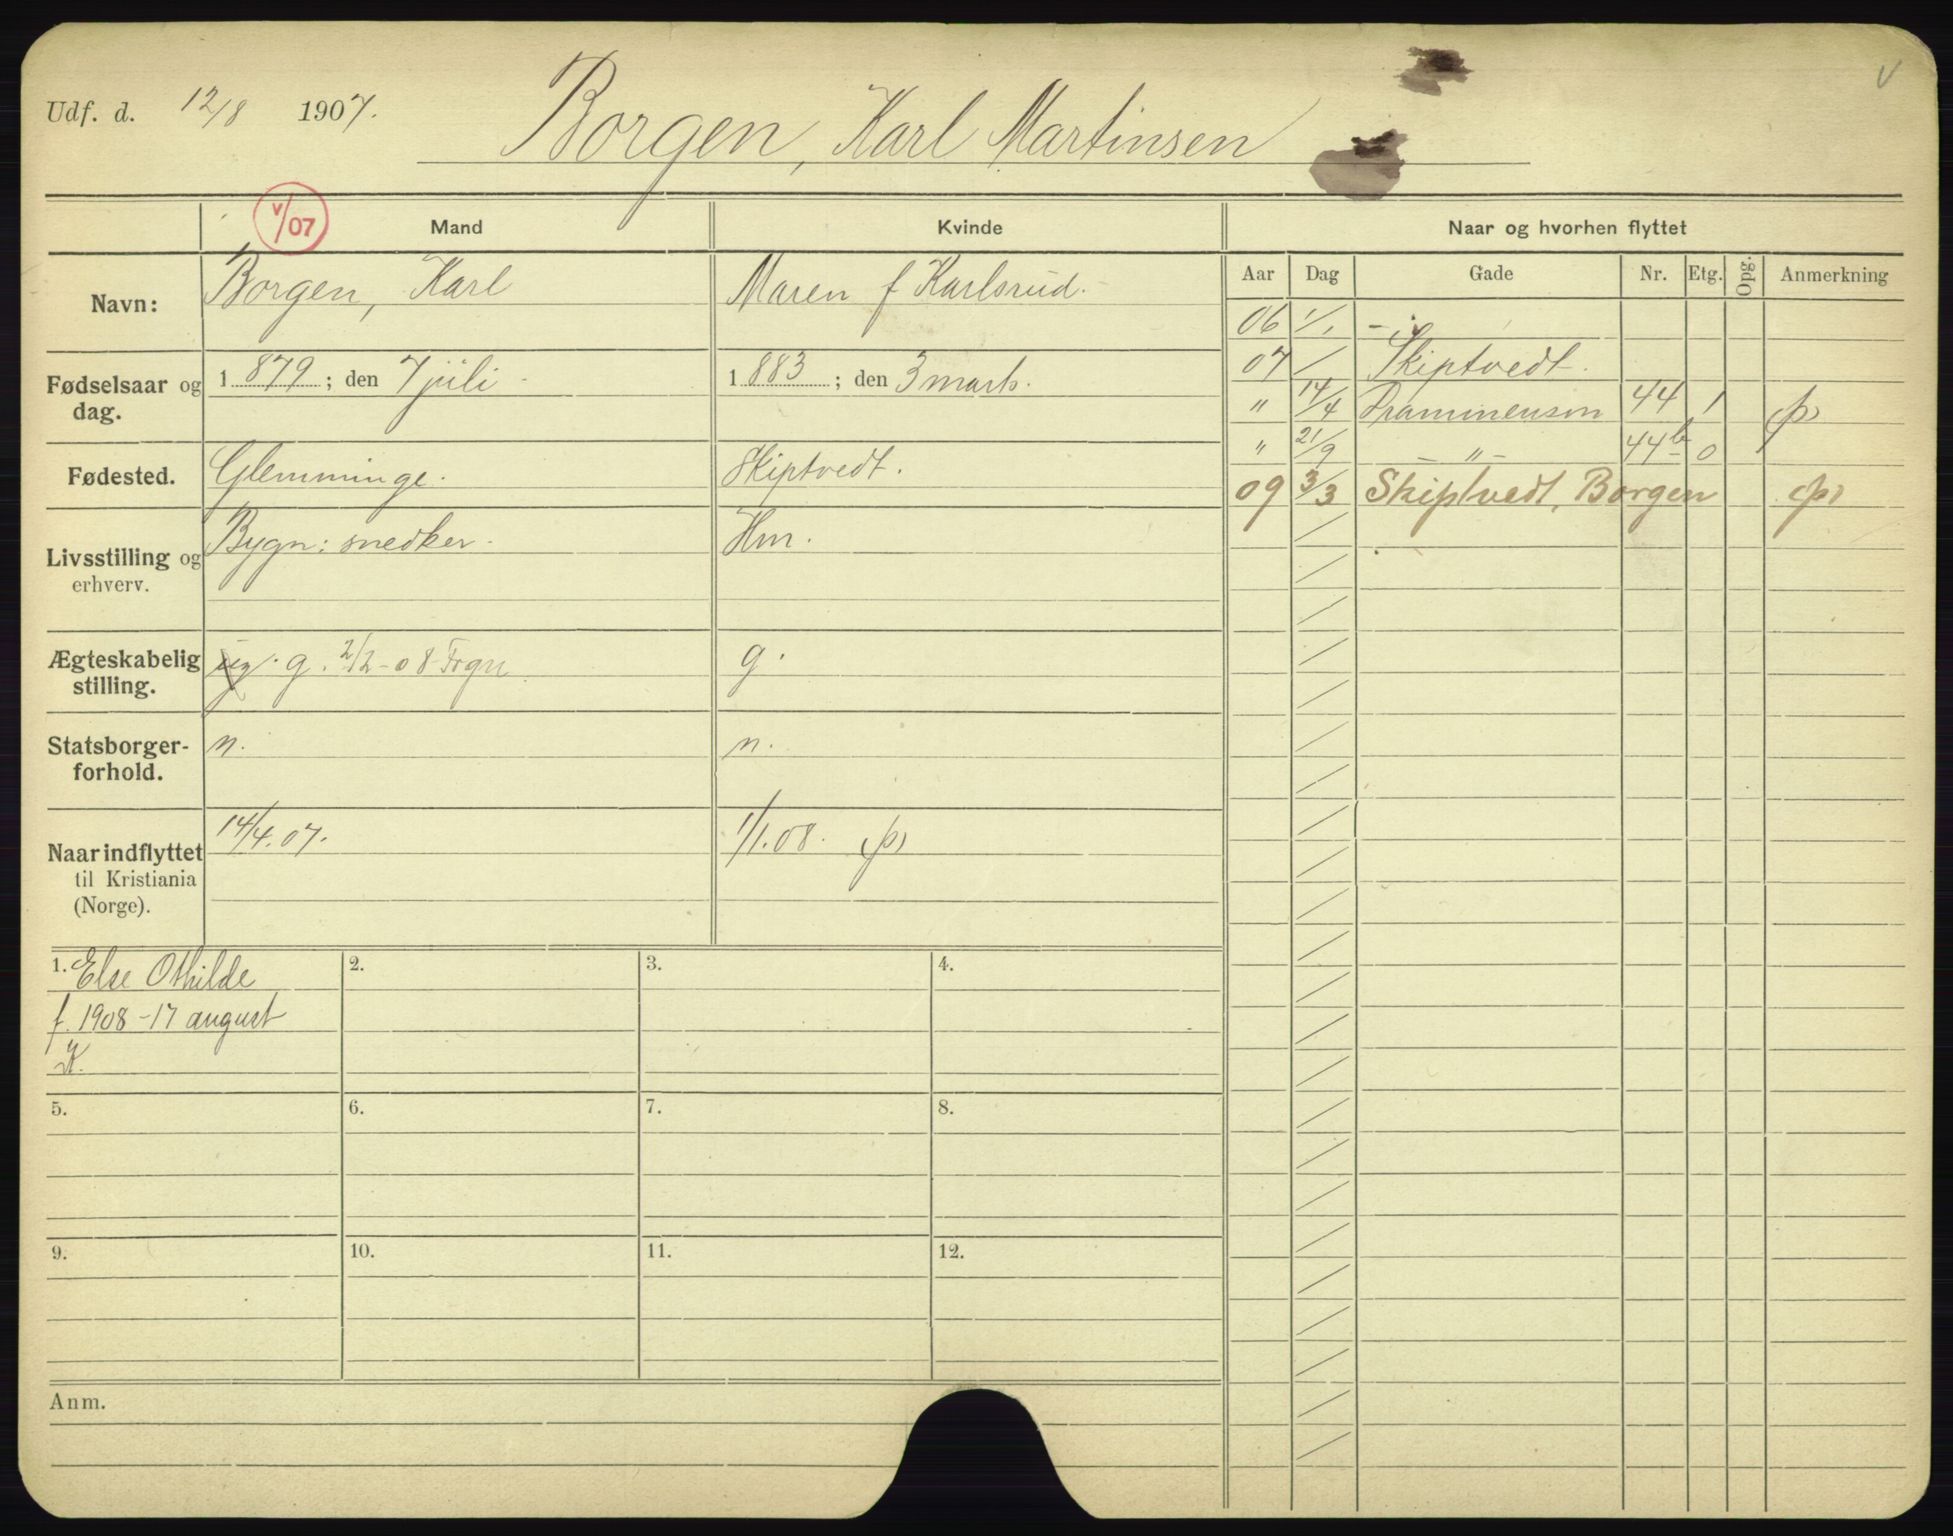 Udf. d. 12/8 1907.
Borgen, Karl Martinsen
V
V/07
Mand Kvinde Naar og hvorhen flyttet
Aar Dag Gade Nr. Etg. Opg. Anmerkning
Navn: Borgen, Karl Maren f Karlsrud.
06 1/1 -
07 / Skiptvedt.
Fødselsaar og dag. 1879; den 7 juli 1883; den 3 marts.
" 14/4 Drammensvn 44 1 (p)
" 21/9 - " - 44b 0
Fødested. Glemminge. Skiptvedt.
09 3/3 Skiptvedt, Borgen (p)
Livsstilling og erhverv. Bygn: snedker. Hm.
Ægteskabelig stilling. ug. g. 2/2-08 Frgn g.
Statsborger-forhold. n. n.
Naar indflyttet til Kristiania (Norge). 14/4.07. 1/1.08. (p)
1. Else Othilde
f. 1908-17 august
K.
2. 3. 4.
5. 6. 7. 8.
9. 10. 11. 12.
Anm.